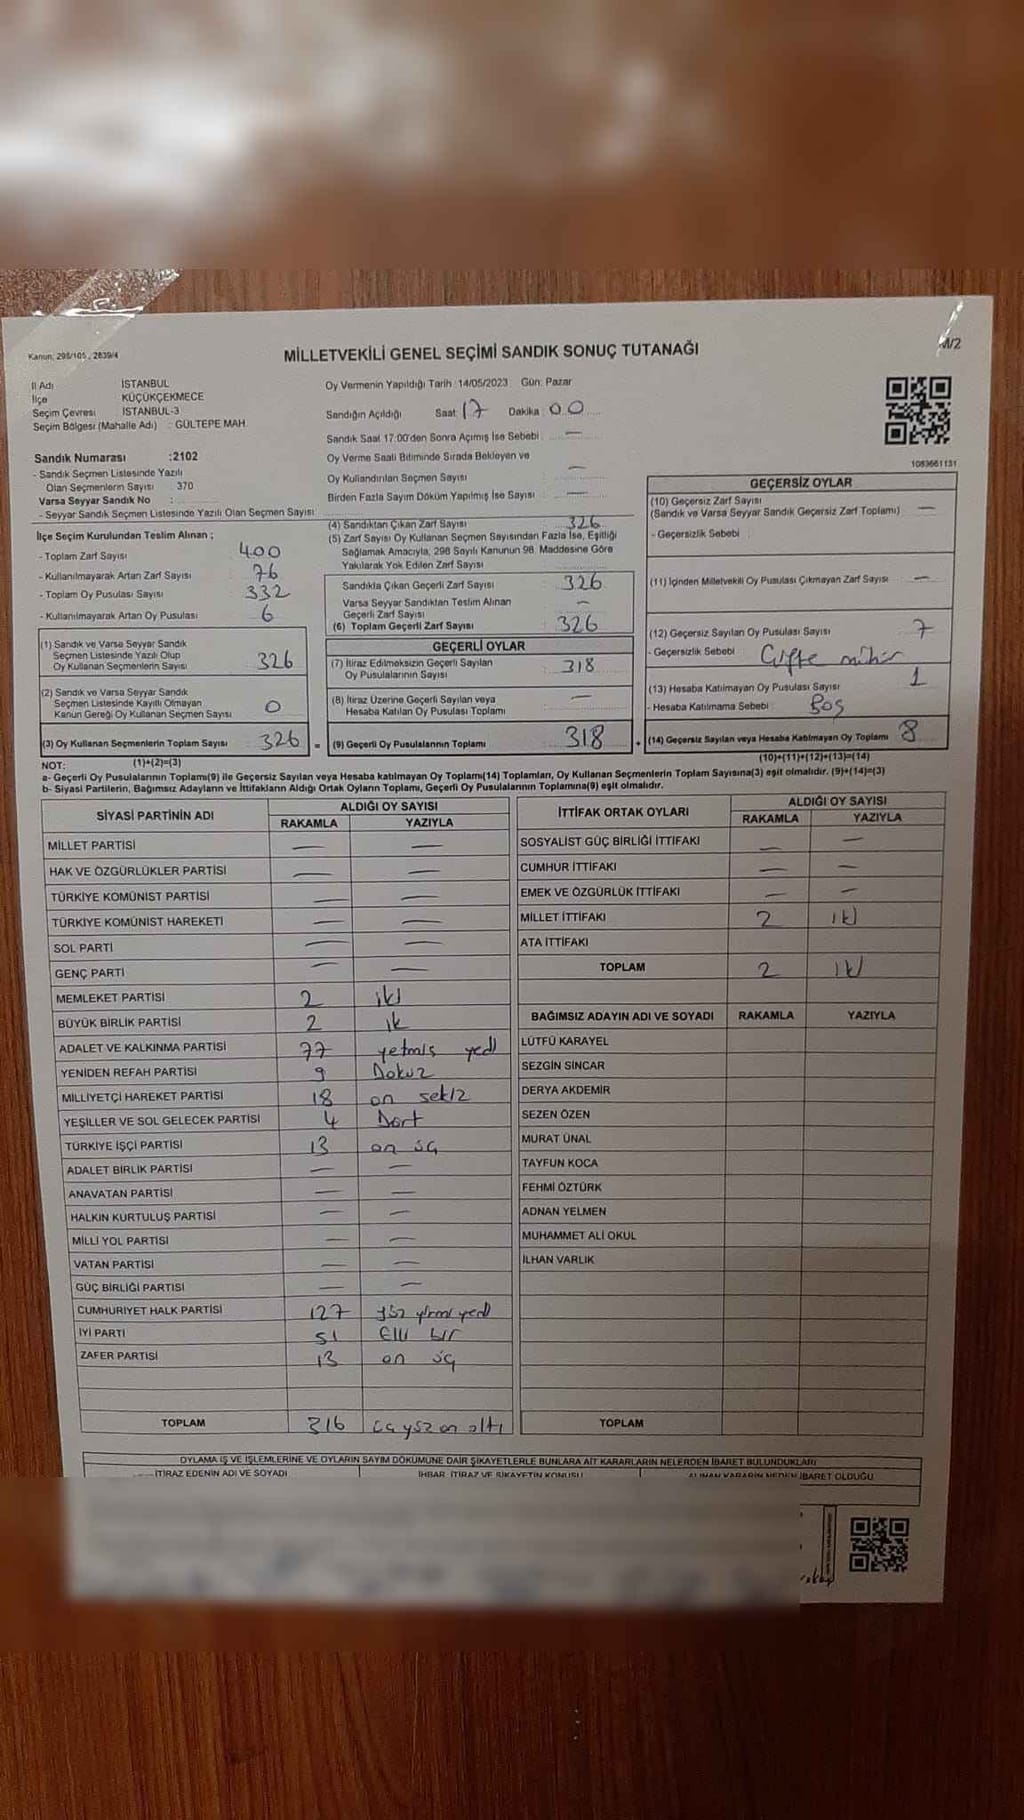 Kanun, 298/105, 2839/4
MİLLETVEKİLİ GENEL SEÇİMİ SANDIK SONUÇ TUTANAĞI
M/2
İl Adı İSTANBUL
İlçe KÜÇÜKÇEKMECE
Seçim Çevresi İSTANBUL-3
Seçim Bölgesi (Mahalle Adı) : GÜLTEPE MAH.
Sandık Numarası :2102
- Sandık Seçmen Listesinde Yazılı
Olan Seçmenlerin Sayısı 370
Varsa Seyyar Sandık No :
- Seyyar Sandık Seçmen Listesinde Yazılı Olan Seçmen Sayısı
Oy Vermenin Yapıldığı Tarih :14/05/2023 Gün: Pazar
Sandığın Açıldığı Saat: 17 Dakika 00
Sandık Saat 17:00'den Sonra Açılmış İse Sebebi —
Oy Verme Saati Bitiminde Sırada Bekleyen ve
Oy Kullandırılan Seçmen Sayısı —
Birden Fazla Sayım Döküm Yapılmış İse Sayısı —
1083661131
İlçe Seçim Kurulundan Teslim Alınan ;
- Toplam Zarf Sayısı 400
- Kullanılmayarak Artan Zarf Sayısı 76
- Toplam Oy Pusulası Sayısı 332
- Kullanılmayarak Artan Oy Pusulası 6
(1) Sandık ve Varsa Seyyar Sandık
Seçmen Listesinde Yazılı Olup
Oy Kullanan Seçmenlerin Sayısı 326
(2) Sandık ve Varsa Seyyar Sandık
Seçmen Listesinde Kayıtlı Olmayan
Kanun Gereği Oy Kullanan Seçmen Sayısı 0
(3) Oy Kullanan Seçmenlerin Toplam Sayısı 326
(1)+(2)=(3)
(4) Sandıktan Çıkan Zarf Sayısı 326
(5) Zarf Sayısı Oy Kullanan Seçmen Sayısından Fazla İse, Eşitliği
Sağlamak Amacıyla, 298 Sayılı Kanunun 98. Maddesine Göre
Yakılarak Yok Edilen Zarf Sayısı
Sandıkta Çıkan Geçerli Zarf Sayısı 326
Varsa Seyyar Sandıktan Teslim Alınan
Geçerli Zarf Sayısı —
(6) Toplam Geçerli Zarf Sayısı 326
GEÇERLİ OYLAR
(7) İtiraz Edilmeksizin Geçerli Sayılan
Oy Pusulalarının Sayısı 318
(8) İtiraz Üzerine Geçerli Sayılan veya
Hesaba Katılan Oy Pusulası Toplamı —
= (9) Geçerli Oy Pusulalarının Toplamı 318
GEÇERSİZ OYLAR
(10) Geçersiz Zarf Sayısı
(Sandık ve Varsa Seyyar Sandık Geçersiz Zarf Toplamı) —
- Geçersizlik Sebebi
(11) İçinden Milletvekili Oy Pusulası Çıkmayan Zarf Sayısı —
(12) Geçersiz Sayılan Oy Pusulası Sayısı 7
- Geçersizlik Sebebi Çifte mühür
(13) Hesaba Katılmayan Oy Pusulası Sayısı 1
- Hesaba Katılmama Sebebi Boş
+ (14) Geçersiz Sayılan veya Hesaba Katılmayan Oy Toplamı 8
(10)+(11)+(12)+(13)=(14)
NOT:
a- Geçerli Oy Pusulalarının Toplamı(9) ile Geçersiz Sayılan veya Hesaba katılmayan Oy Toplamı(14) Toplamları, Oy Kullanan Seçmenlerin Toplam Sayısına(3) eşit olmalıdır. (9)+(14)=(3)
b- Siyasi Partilerin, Bağımsız Adayların ve İttifakların Aldığı Ortak Oyların Toplamı, Geçerli Oy Pusulalarının Toplamına(9) eşit olmalıdır.
SİYASİ PARTİNİN ADI ALDIĞI OY SAYISI
RAKAMLA YAZIYLA
MİLLET PARTİSİ — —
HAK VE ÖZGÜRLÜKLER PARTİSİ — —
TÜRKİYE KOMÜNİST PARTİSİ — —
TÜRKİYE KOMÜNİST HAREKETİ — —
SOL PARTİ — —
GENÇ PARTİ — —
MEMLEKET PARTİSİ 2 iki
BÜYÜK BİRLİK PARTİSİ 2 ik
ADALET VE KALKINMA PARTİSİ 77 yetmiş yedi
YENİDEN REFAH PARTİSİ 9 Dokuz
MİLLİYETÇİ HAREKET PARTİSİ 18 on sekiz
YEŞİLLER VE SOL GELECEK PARTİSİ 4 Dört
TÜRKİYE İŞÇİ PARTİSİ 13 on üç
ADALET BİRLİK PARTİSİ — —
ANAVATAN PARTİSİ — —
HALKIN KURTULUŞ PARTİSİ — —
MİLLİ YOL PARTİSİ — —
VATAN PARTİSİ — —
GÜÇ BİRLİĞİ PARTİSİ — —
CUMHURİYET HALK PARTİSİ 127 yüz yirmi yedi
İYİ PARTİ 51 Elli bir
ZAFER PARTİSİ 13 on üç
TOPLAM 316 üç yüz on altı
İTTİFAK ORTAK OYLARI ALDIĞI OY SAYISI
RAKAMLA YAZIYLA
SOSYALİST GÜÇ BİRLİĞİ İTTİFAKI — —
CUMHUR İTTİFAKI — —
EMEK VE ÖZGÜRLÜK İTTİFAKI — —
MİLLET İTTİFAKI 2 iki
ATA İTTİFAKI
TOPLAM 2 iki
BAĞIMSIZ ADAYIN ADI VE SOYADI RAKAMLA YAZIYLA
LÜTFÜ KARAYEL
SEZGİN SİNCAR
DERYA AKDEMİR
SEZEN ÖZEN
MURAT ÜNAL
TAYFUN KOCA
FEHMİ ÖZTÜRK
ADNAN YELMEN
MUHAMMET ALİ OKUL
İLHAN VARLIK
TOPLAM
OYLAMA İŞ VE İŞLEMLERİNE VE OYLARIN SAYIM DÖKÜMÜNE DAİR ŞİKAYETLERLE BUNLARA AİT KARARLARIN NELERDEN İBARET BULUNDUKLARI
İTİRAZ EDENİN ADI VE SOYADI İHBAR, İTİRAZ VE ŞİKAYETİN KONUSU ALINAN KARARIN NEDEN İBARET OLDUĞU